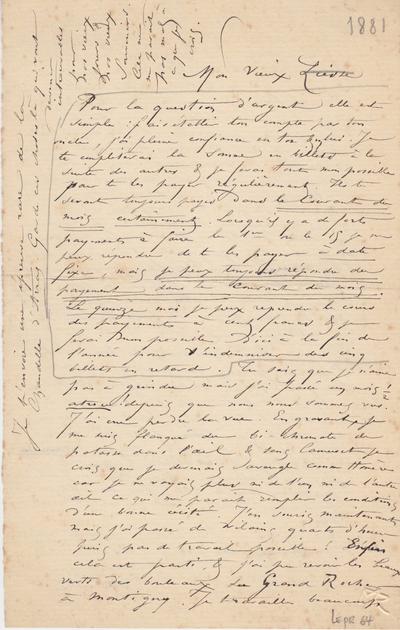 1881
Mon Vieux Liesse
Pour la question d'argent elle est
simple : fais établir ton compte par ton
j'ai pleine confiance en ton
te compléterai la somme en billets à la
suite des autres & je ferai tout mon possible
pour te les payer régulièrement. Ils te
seront toujours payés dans le courant du
mois certainement. Lorsqu'il y a de forts
payements à faire le 1er ou le 15 je ne
peux répondre de te les payer à date
fixe, mais je peux toujours répondre du
payement dans le courant du mois.
Le quinze mai je peux reprendre le cours
des payements à cent francs & je
ferai mon possible d'ici à la fin de
l'année pour t'indemniser des cinq
billets en retard. Tu sais que je n'aime
pas à geindre mais j'ai passé un mois
atroce depuis que nous nous sommes vus.
J'ai cru perdre la vue. En gravant je
me suis flanqué du bi-chromate de
potasse dans l'œil & sans l'
crois que je devenais aveugle comme Homère
car je ne voyais plus ni de l'un ni de l'autre
œil ce qui me paraît remplir les conditions
d'une bonne cécité. J'en souris maintenant
mais j'ai passé de vilains quarts d'heure
puis pas de travail possible ! Enfin
cela est parti & j'ai pu revoir les beaux
verts des bouleaux de la Grande Roche
à Montigny. Je travaille beaucoup
Je t'envoie une épreuve rare de la